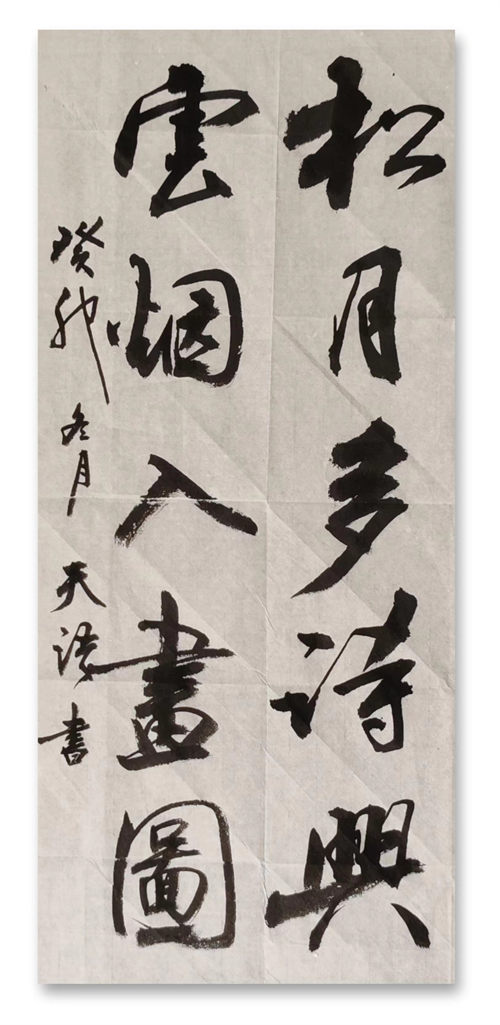 松月多詩興
雲烟入畫圖
癸卯冬月天漢書